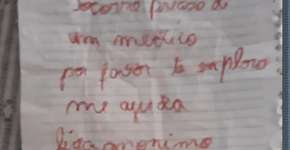 socorro preciso de
um medico
por favor te imploro
me ajuda
liga anonimo